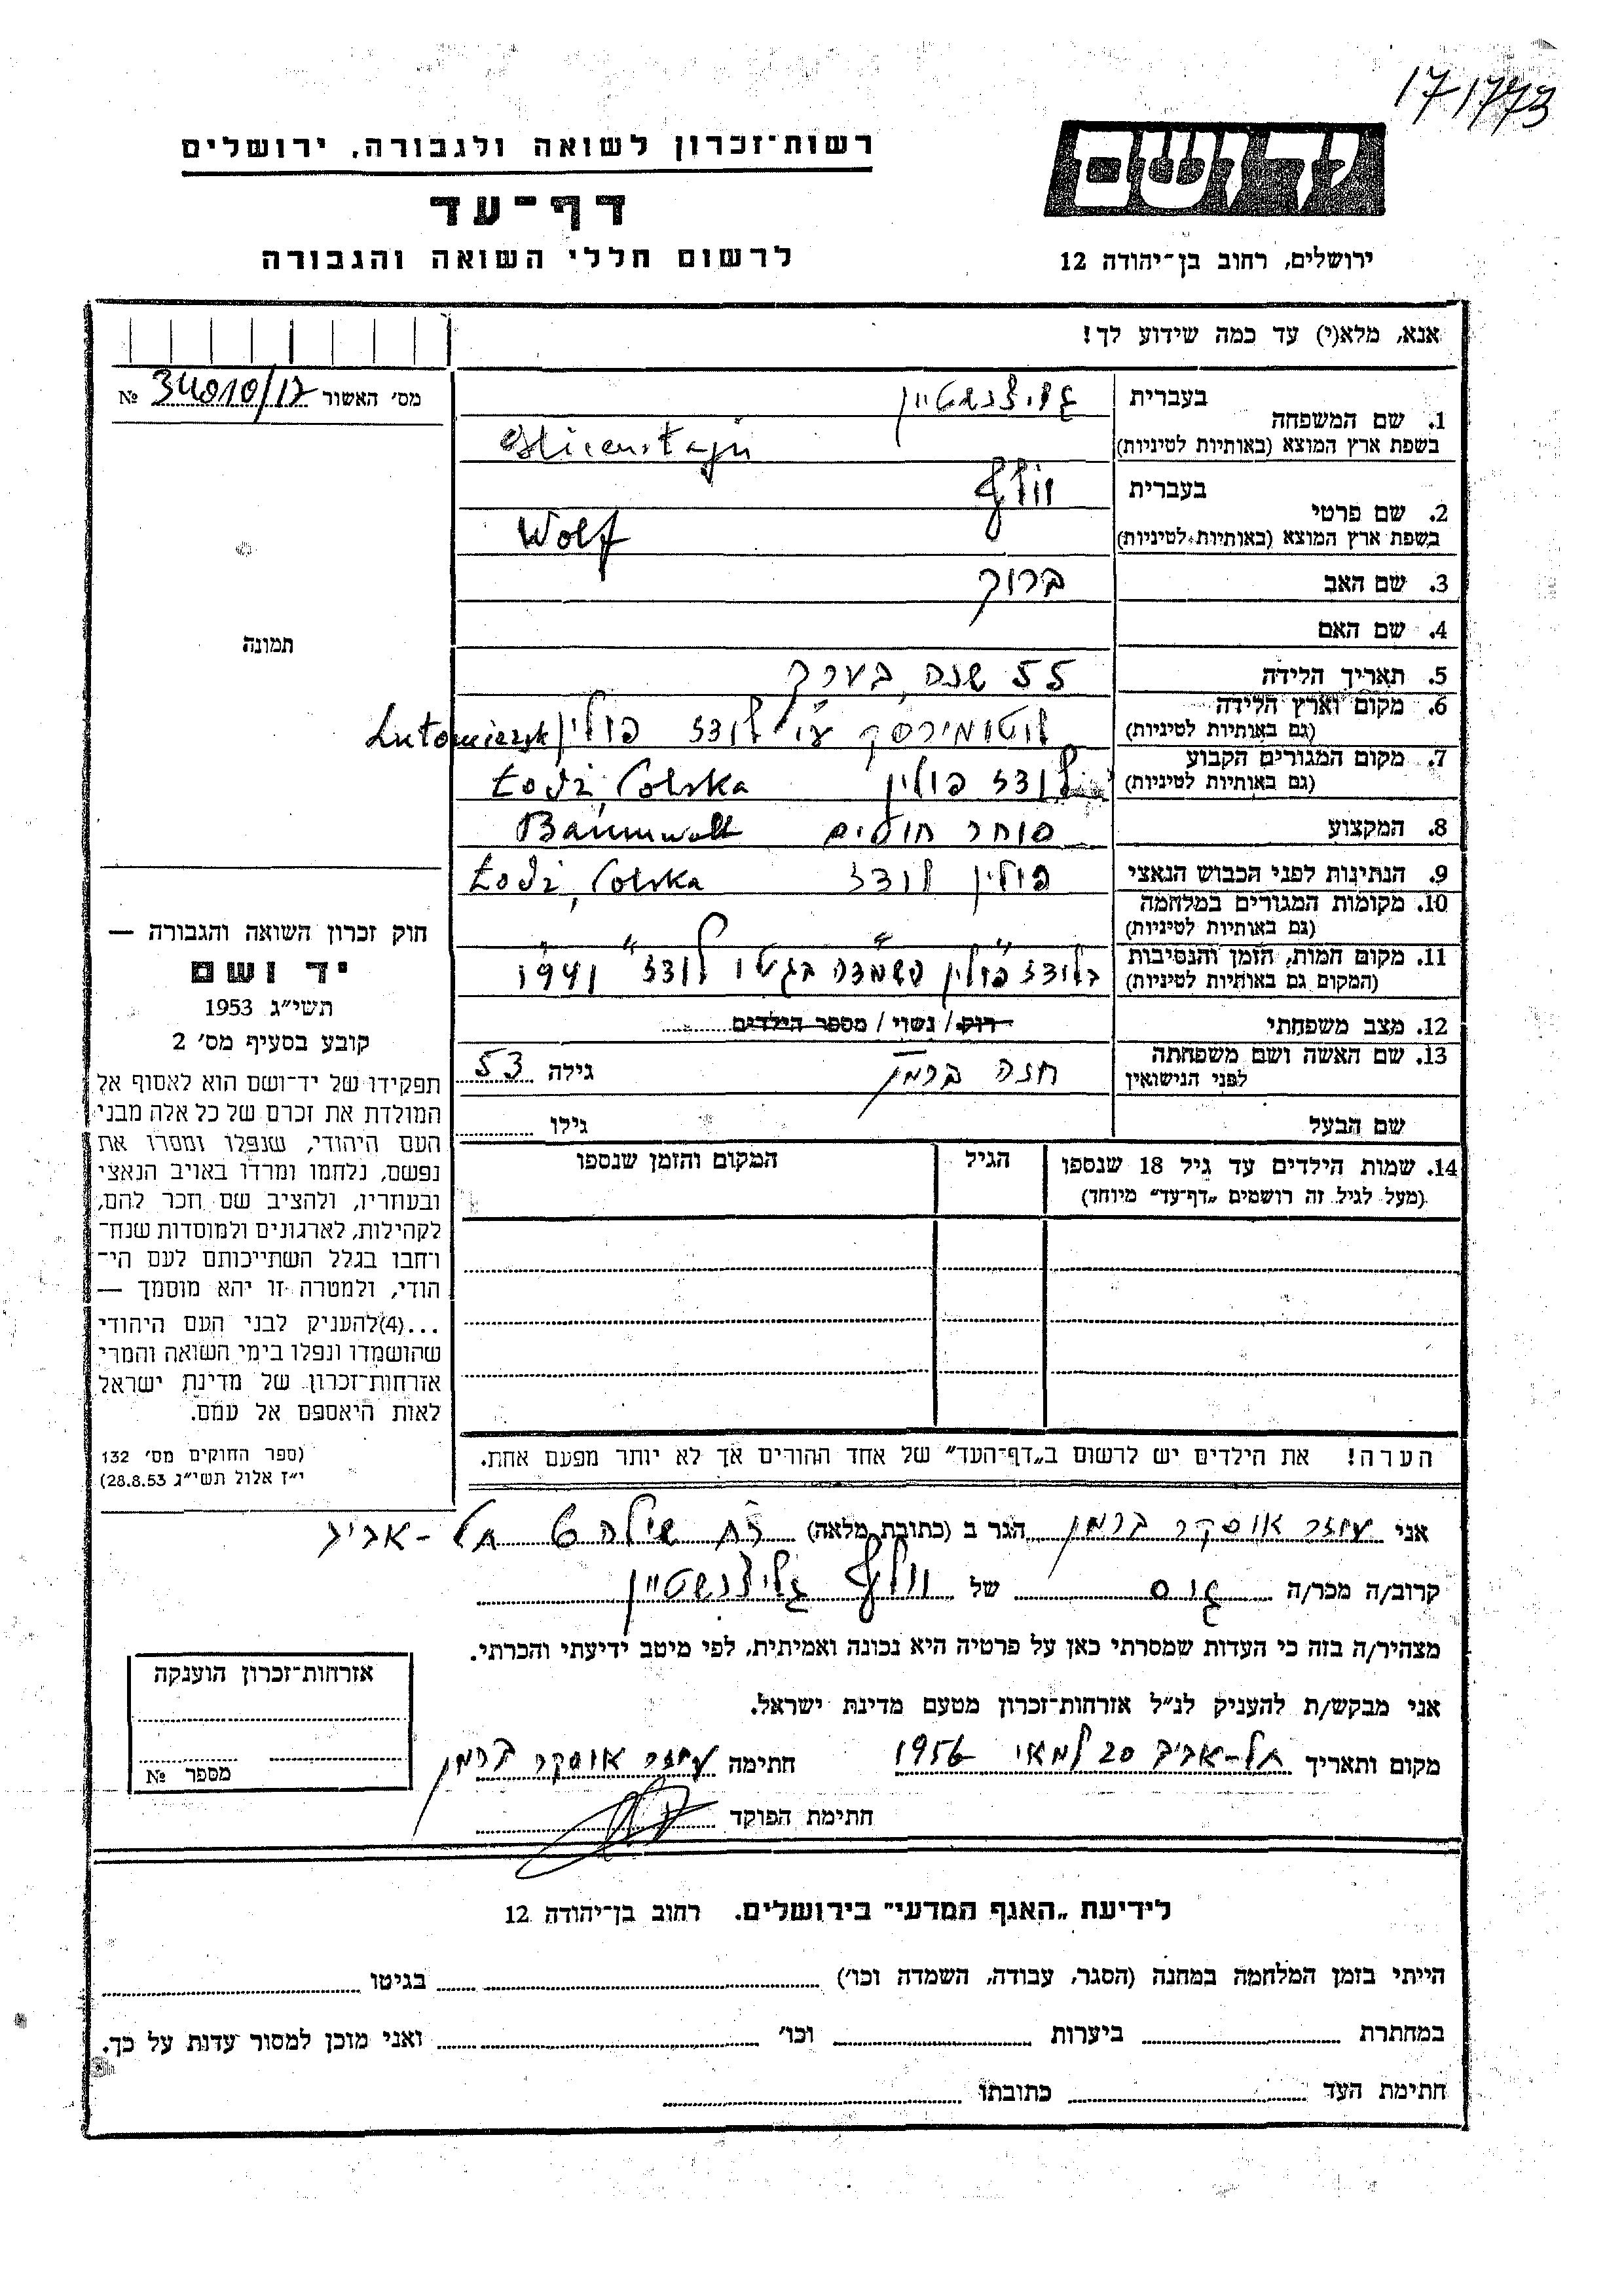 171773
רשות־זכרון לשואה ולגבורה, ירושלים
יד ושם
דף־עד
לרשום חללי השואה והגבורה
ירושלים, רחוב בן־יהודה 12
אנא, מלא(י) עד כמה שידוע לך!
מס׳ האשור № 34010/17
1. שם המשפחה בעברית גליצנשטיין
בשפת ארץ המוצא (באותיות לטיניות) Glicenstajn
2. שם פרטי בעברית וולף
בשפת ארץ המוצא (באותיות לטיניות) Wolf
3. שם האב ברוך
4. שם האם
תמונה
5. תאריך הלידה 55 שנה בערך
6. מקום וארץ הלידה (גם באותיות לטיניות) לוטומירסק ע״י לודז פולין Lutomiersk
7. מקום המגורים הקבוע (גם באותיות לטיניות) לודז פולין Łodź, Polska
8. המקצוע סוחר חוטים Baumwoll
9. הנתינות לפני הכבוש הנאצי פולין לודז Łodź, Polska
10. מקומות המגורים במלחמה (גם באותיות לטיניות) ״ ״ ״
11. מקום המות, הזמן והנסיבות (המקום גם באותיות לטיניות) בלודז פולין השמדה בגטו לודז 1941
12. מצב משפחתי רוק / נשוי / מספר הילדים
13. שם האשה ושם משפחתה לפני הנישואין חנה ברמן גילה 53
שם הבעל גילו
14. שמות הילדים עד גיל 18 שנספו הגיל המקום והזמן שנספו
(מעל לגיל זה רושמים „דף־עד״ מיוחד)
חוק זכרון השואה והגבורה —
יד ושם
תשי״ג 1953
קובע בסעיף מס׳ 2
תפקידו של יד־ושם הוא לאסוף אל
המולדת את זכרם של כל אלה מבני
העם היהודי, שנפלו ומסרו את
נפשם, נלחמו ומרדו באויב הנאצי
ובעוזריו, ולהציב שם וזכר להם,
לקהילות, לארגונים ולמוסדות שנח־
רבו בגלל השתייכותם לעם הי־
הודי, ולמטרה זו יהא מוסמך —
...(4)להעניק לבני העם היהודי
שהושמדו ונפלו בימי השואה והמרי
אזרחות־זכרון של מדינת ישראל
לאות היאספם אל עמם.
(ספר החוקים מס׳ 132
י״ז אלול תשי״ג 28.8.53)
הערה! את הילדים יש לרשום ב„דף־העד״ של אחד ההורים אך לא יותר מפעם אחת.
אני עוזר אוסקר ברמן הגר ב (כתובת מלאה) רח שילה 6 תל-אביב
קרוב/ה מכר/ה גיס של וולף גליצנשטיין
מצהיר/ה בזה כי העדות שמסרתי כאן על פרטיה היא נכונה ואמיתית, לפי מיטב ידיעתי והכרתי.
אני מבקש/ת להעניק לנ״ל אזרחות־זכרון מטעם מדינת ישראל.
מקום ותאריך תל-אביב 20 למאי 1956 חתימה עוזר אוסקר ברמן
חתימת הפוקד
אזרחות־זכרון הוענקה
מספר №
לידיעת „האגף המדעי״ בירושלים, רחוב בן־יהודה 12
הייתי בזמן המלחמה במחנה (הסגר, עבודה, השמדה וכו׳) בגיטו
במחתרת ביערות וכו׳ ואני מוכן למסור עדות על כך.
חתימת העד כתובתו